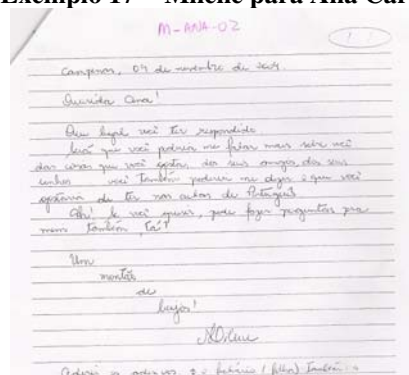 Exemplo 17 – Milene para Ana Car
M-ANA-02
Campinas, 04 de novembro de 2004.
Querida Ana!
Que legal você ter respondido.
Será que você poderia me falar mais sobre você
das coisas que você gosta, dos seus amigos, dos seus
sonhos você também poderia me dizer o que você
gostaria de ter nas aulas de Português
Ah! Se você quiser, pode fazer perguntas pra
mim também, tá?
Um
montão
de
beijos!
Milene